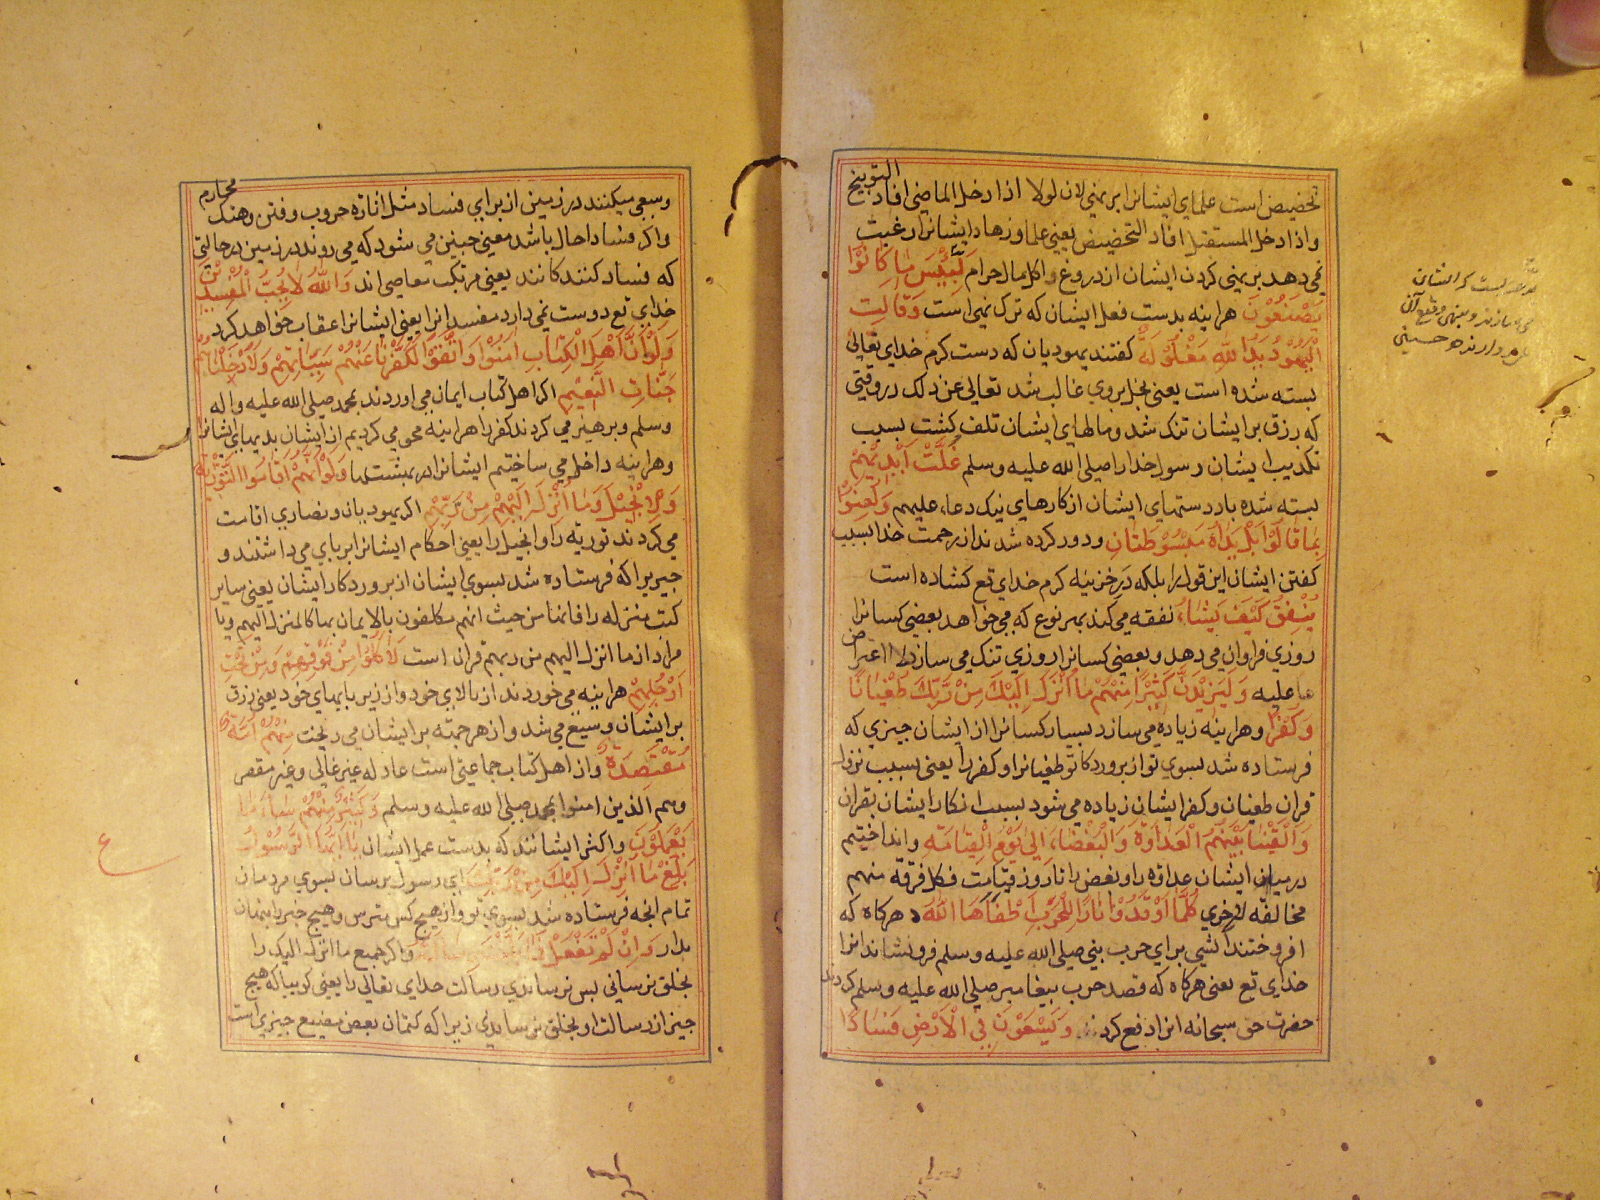 التوبیخ
تخصیص است علمای ایشانرا بر نهی لان لولا اذا دخل الماضی افاد
واذا دخل المستقبل افاد التخصیص یعنی علما وزهاد ایشانرا رغبت
نمی دهد بر نهی کردن ایشان از دروغ و اکل مال حرام لَبِئْسَ مَا كَانُوا
يَصْنَعُونَ هراینه بدست فعل ایشان که ترک نهی است وَقَالَتِ
الْيَهُودُ يَدُ اللّٰهِ مَغْلُولَةٌ گفتند یهودیان که دست کرم خدای تعالی
بسته شده است یعنی بخل بروی غالب شد تعالی عن ذلک در وقتی
که رزق بر ایشان تنک شد و مالهای ایشان تلف کشت بسبب
تکذیب ایشان رسول خدا را صلی الله علیه وسلم غُلَّتْ اَيْدِيهِمْ
بسته شده باد دستهای ایشان از کارهای نیک دعاء علیهم وَلُعِنُوا
بِمَا قَالُوا بَلْ يَدَاهُ مَبْسُوطَتَانِ ودور کرده شدند از رحمت خدا بسبب
کفتن ایشان این قول را بلکه در خزینه کرم خدای تع کشاده است
يُنْفِقُ كَيْفَ يَشَاءُ نفقه می کند بهر نوع که می خواهد بعضی کسانرا
روزی فراوان می دهد و بعضی کسانرا روزی تنک می سازد لا اعتراض
علیه وَلَيَزِيدَنَّ كَثِيرًا مِنْهُمْ مَا اُنْزِلَ اِلَيْكَ مِنْ رَبِّكَ طُغْيَانًا
وَكُفْرًا وهراینه زیاده می سازد بسیار کسانرا از ایشان چیزی که
فرستاده شد بسوی تو از پروردکار تو طغیانرا و کفر را یعنی بسبب نزول
قران طغیان و کفر ایشان زیاده می شود بسبب انکار ایشان بقران
وَاَلْقَيْنَا بَيْنَهُمُ الْعَدَاوَةَ وَالْبَغْضَاءَ اِلَى يَوْمِ الْقِيَامَةِ وانداختیم
درمیان ایشان عداوة را و بغض را تا روز قیامت فکل فرقة منهم
مخالفة لاخری كُلَّمَا اَوْقَدُوا نَارًا لِلْحَرْبِ اَطْفَاَهَا اللّٰهُ هرکاه که
افروختند اتشی برای حرب نبی صلی الله علیه وسلم فرو نشاند انرا
خدای تع یعنی هرکاه که قصد حرب پیغامبر صلی الله علیه وسلم کردند
حضرت حق سبحانه انرا دفع کرد وَيَسْعَوْنَ فِي الْاَرْضِ فَسَادًا
محارم
وسعی میکنند در زمین از برای فساد مثل اثاره حروب و فتن و هتک
واکر فسادا حال باشد معنی چنین می شود که می روند در زمین در حالتی
که فساد کنندکانند یعنی مرتکب معاصی اند وَاللّٰهُ لَا يُحِبُّ الْمُفْسِدِينَ
خدای تع دوست نمی دارد مفسدانرا یعنی ایشانرا عقاب خواهد کرد
وَلَوْ اَنَّ اَهْلَ الْكِتَابِ اٰمَنُوا وَاتَّقَوْا لَكَفَّرْنَا عَنْهُمْ سَيِّئَاتِهِمْ وَلَاَدْخَلْنَاهُمْ
جَنَّاتِ النَّعِيمِ اکر اهل کتاب ایمان می اوردند بمحمد صلی الله علیه واله
وسلم وپرهیز می کردند کفر را هراینه محو می کردیم از ایشان بدیهای ایشانرا
وهراینه داخل می ساختیم ایشانرا در بهشت ها وَلَوْ اَنَّهُمْ اَقَامُوا التَّوْرٰيةَ
وَالْاِنْجِيلَ وَمَا اُنْزِلَ اِلَيْهِمْ مِنْ رَبِّهِمْ اکر یهودیان و نصاری اقامت
می کردند توریة را و انجیل را یعنی احکام ایشانرا بر پای می داشتند و
چیزیرا که فرستاده شد بسوی ایشان از پروردکار ایشان یعنی سایر
کتب منزله را فانها من حیث انهم مکلفون بالایمان بها کالمنزل الیهم ویا
مراد از ما انزل الیهم من ربهم قران است لَاَكَلُوا مِنْ فَوْقِهِمْ وَمِنْ تَحْتِ
اَرْجُلِهِمْ هراینه می خوردند از بالای خود و از زیر پایهای خود یعنی رزق
بر ایشان وسیع می شد و از هر جهة بر ایشان می ریخت مِنْهُمْ اُمَّةٌ
مُقْتَصِدَةٌ واز اهل کتاب جماعتی است عادله غیر غالی وغیر مقصر
وهم الذین امنوا بمحمد صلی الله علیه وسلم وَكَثِيرٌ مِنْهُمْ سَاءَ مَا
يَعْمَلُونَ واکثر ایشانند که بدست عمل ایشان يَا اَيُّهَا الرَّسُولُ
بَلِّغْ مَا اُنْزِلَ اِلَيْكَ مِنْ رَبِّكَ ای رسول برسان بسوی مردمان
تمام انچه فرستاده شد بسوی تو و از هیچ کس مترس و هیچ خبر را پنهان
مدار وَاِنْ لَمْ تَفْعَلْ فَمَا بَلَّغْتَ رِسَالَتَهُ واکر جمیع ما انزل الیک را
بخلق نرسانی پس نرسانیدی رسالت خدای تعالی را یعنی کوییا که هیچ
چیز از رسالت او بخلق نرسانیدی زیرا که کتمان بعض مضیع چیزی است
ع